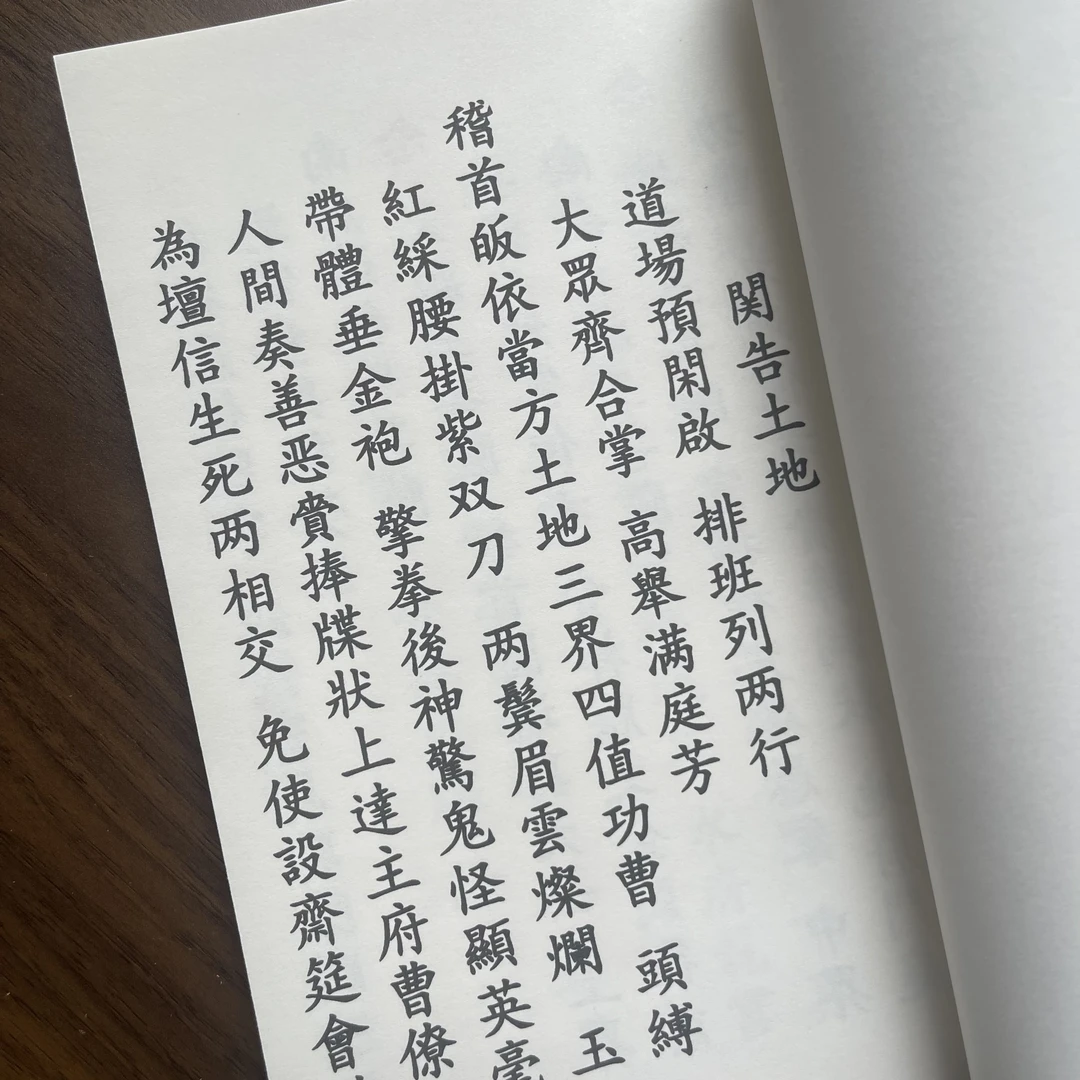 関告土地
道場預閑啟 排班列两行
大眾齊合掌 高舉满庭芳
稽首皈依當方土地三界四值功曹 頭縛
紅綵腰掛紫双刀 两鬓眉雲燦爛 玉
帶體垂金袍 擎拳後神驚鬼怪顯英毫
人間奏善恶賞捧牒狀上達主府曹僚
為壇信生死两相交 免使設齋筵會